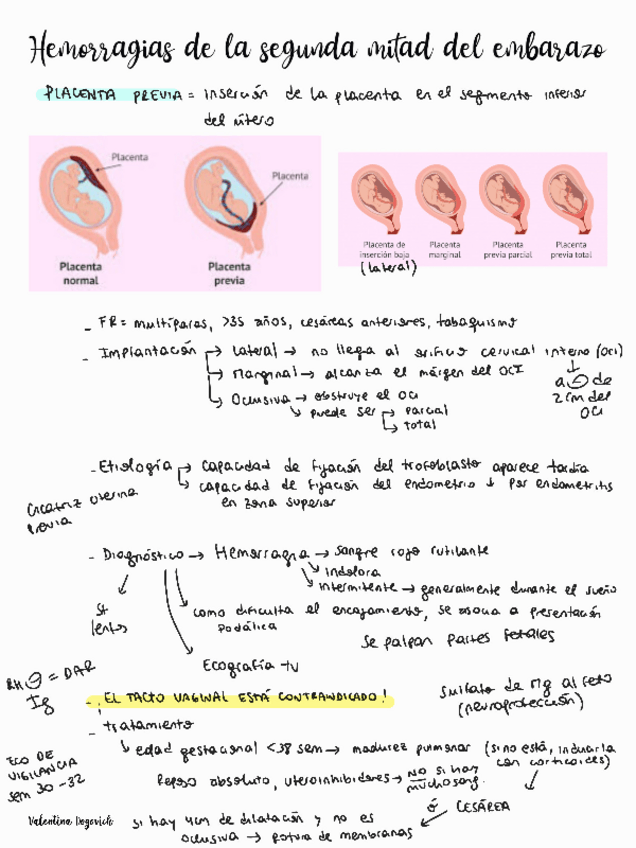 Hemorragias de la segunda mitad del embarazo
PLACENTA PREVIA = inserción de la placenta en el segmento inferior
del útero
Placenta
Placenta
Placenta normal
Placenta previa
Placenta de inserción baja
(lateral)
Placenta marginal
Placenta previa parcial
Placenta previa total
- FR = multíparas, >35 años, cesáreas anteriores, tabaquismo
- Implantación → Lateral → no llega al orificio cervical interno (OCI)
↓ a ⊖ de 2 cm del OCI
→ Marginal → alcanza el márgen del OCI
→ Oclusiva → obstruye el OCI
↘ puede ser → parcial
→ total
- Etiología → capacidad de fijación del trofoblasto aparece tardía
→ capacidad de fijación del endometrio ↓ por endometritis
en zona superior
Cicatriz uterina
previa
- Diagnóstico → Hemorragia → sangre rojo rutilante
↘ indolora
↘ intermitente → generalmente durante el sueño
St
lentos
como dificulta el encajamiento, se asocia a presentación
podálica
se palpan partes fetales
Ecografía tv
RH ⊖ = DAR
Ig
- ¡EL TACTO VAGINAL ESTÁ CONTRAINDICADO!
Sulfato de Mg al feto
(neuroprotección)
- tratamiento
↳ edad gestacional <38 sem → madurez pulmonar (si no está, inducirla
con corticoides)
ECO DE
VIGILANCIA
sem 30-32
Reposo absoluto, uteroinhibidores → NO si hay
mucho sang.
ó CESÁREA
Valentina Degovich
si hay 4cm de dilatación y no es
oclusiva → rotura de membranas